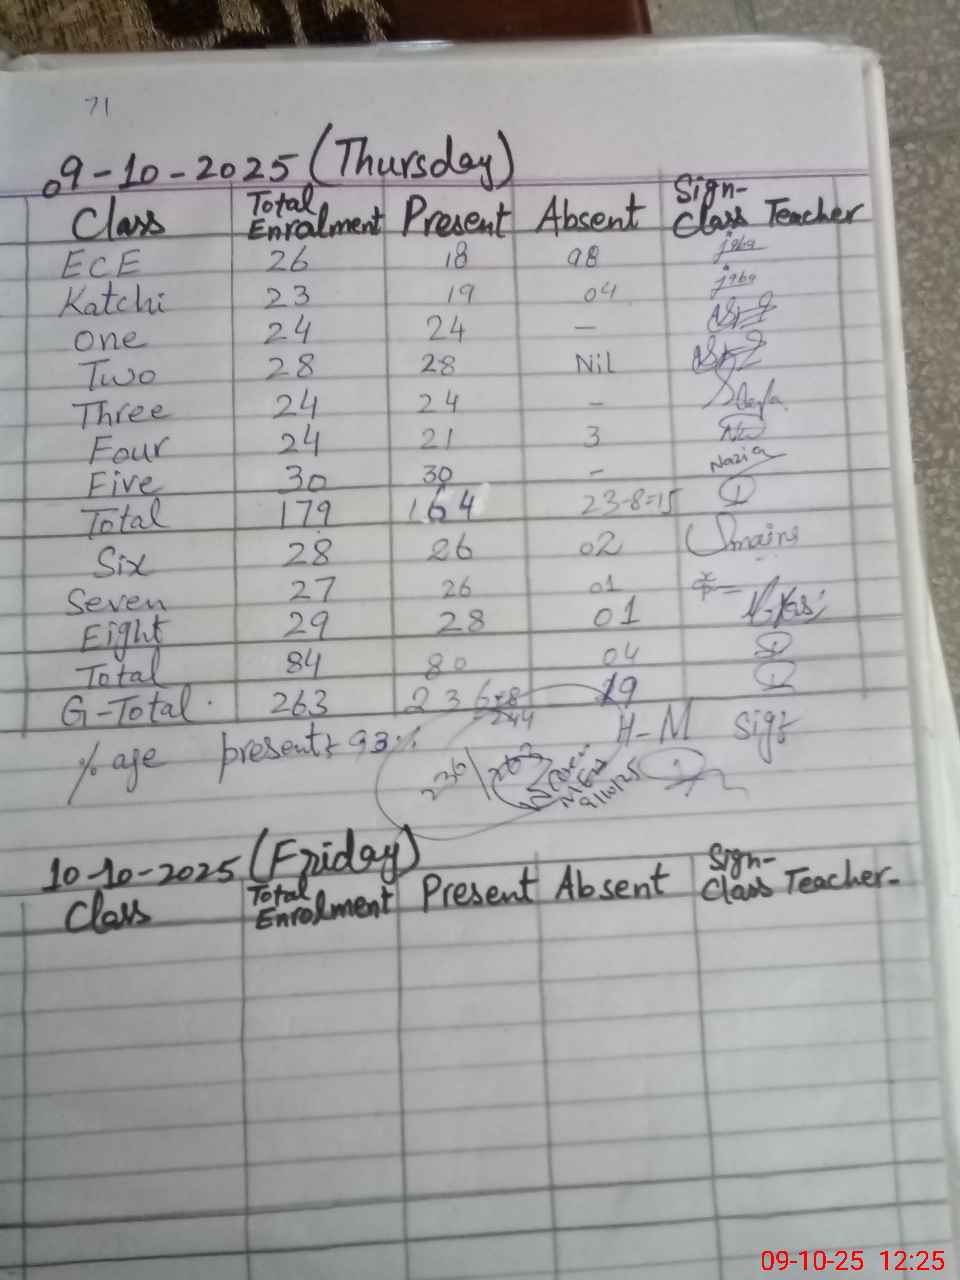 71
09-10-2025 (Thursday)
Class Total Enralment Present Absent Sign-Class Teacher
ECE 26 18 08
Katchi 23 19 04
One 24 24 —
Two 28 28 Nil
Three 24 24 -
Four 24 21 3
Five 30 30 - Nazia
Total 179 164 23-8=15
Six 28 26 02
Seven 27 26 01
Eight 29 28 01
Total 84 80 04
G-Total. 263 236+8 19
244
% age present: 93% H-M Sig:
236/263
9/10/25
10-10-2025 (Friday)
Class Total Enrolment Present Absent Sign-Class Teacher-
09-10-25 12:25